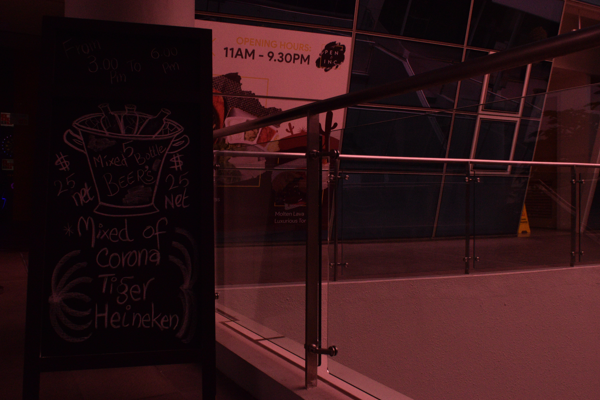 From
3.00 to 6.00
PM pm
5
Mixed Bottle
BEERS
$ $
25 25
net NET
*Mixed of
Corona
Tiger
Heineken
OPENING HOURS:
11AM - 9.30PM